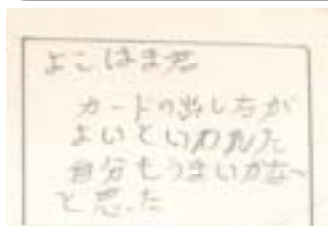 よこはま君
カードの出し方が
よいといわれた
自分もうまいかな〜
と思った